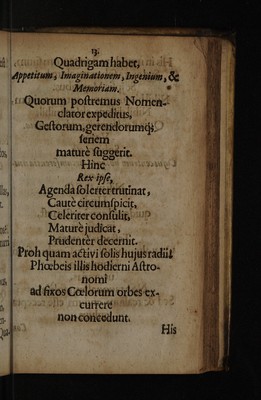 13.
Quadrigam habet,
Appetitum, Imaginationem, Ingenium, &
Memoriam.
Quorum postremus Nomen-
clator expeditus,
Gestorum, gerendorumq;
seriem
maturè suggerit.
Hinc
Rex ipse,
Agenda solerter trutinat,
Cautè circumspicit,
Celeriter consulit,
Maturè judicat,
Prudentèr decernit.
Proh quam activi solis hujus radii!
Phœbeis illis hodierni Astro-
nomi
ad fixos Cœlorum orbes ex-
currere
non concedunt.
His